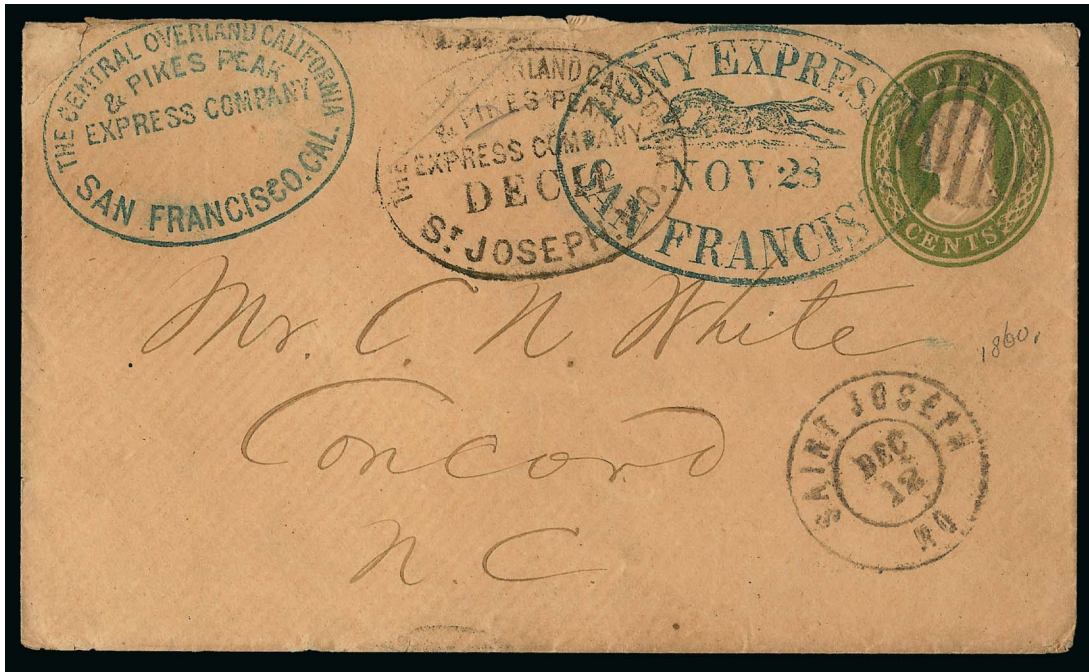 THE CENTRAL OVERLAND CALIFORNIA
& PIKES PEAK
EXPRESS COMPANY
SAN FRANCISCO. CAL.
THE OVERLAND CAL
& PIKES PEAK
EXPRESS COMPANY
DEC
ST JOSEPH. MO.
PONY EXPRESS
NOV. 28
SAN FRANCISCO
TEN
CENTS
Mr. C. N. White
Concord
N. C.
1860.
SAINT JOSEPH
DEC
12
MO